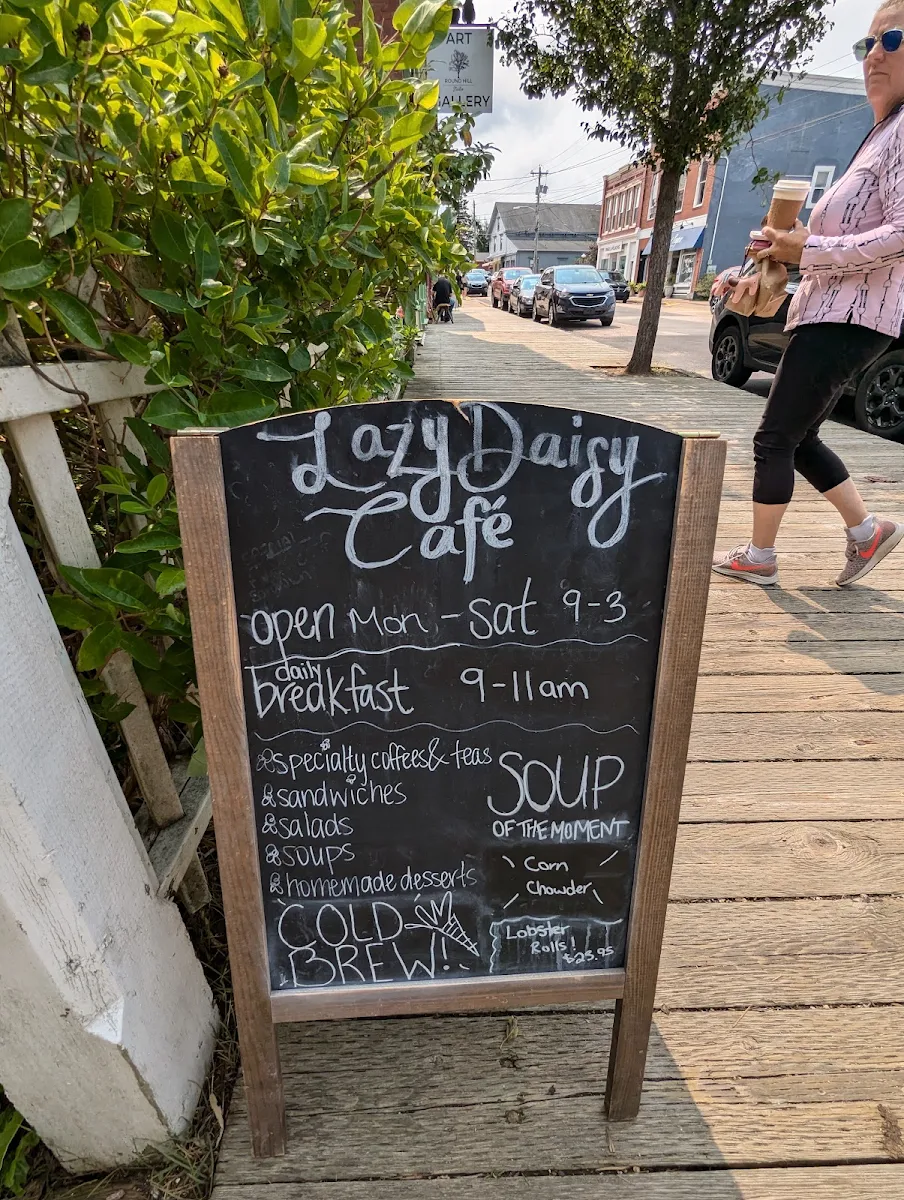 ART
ROUND HILL
GALLERY
Lazy Daisy
Café
open Mon - sat 9-3
daily
breakfast 9-11am
specialty coffees & teas
sandwiches
salads
soups
homemade desserts
COLD
BREW!
SOUP
OF THE MOMENT
Corn
Chowder
Lobster
Rolls!
$25.95